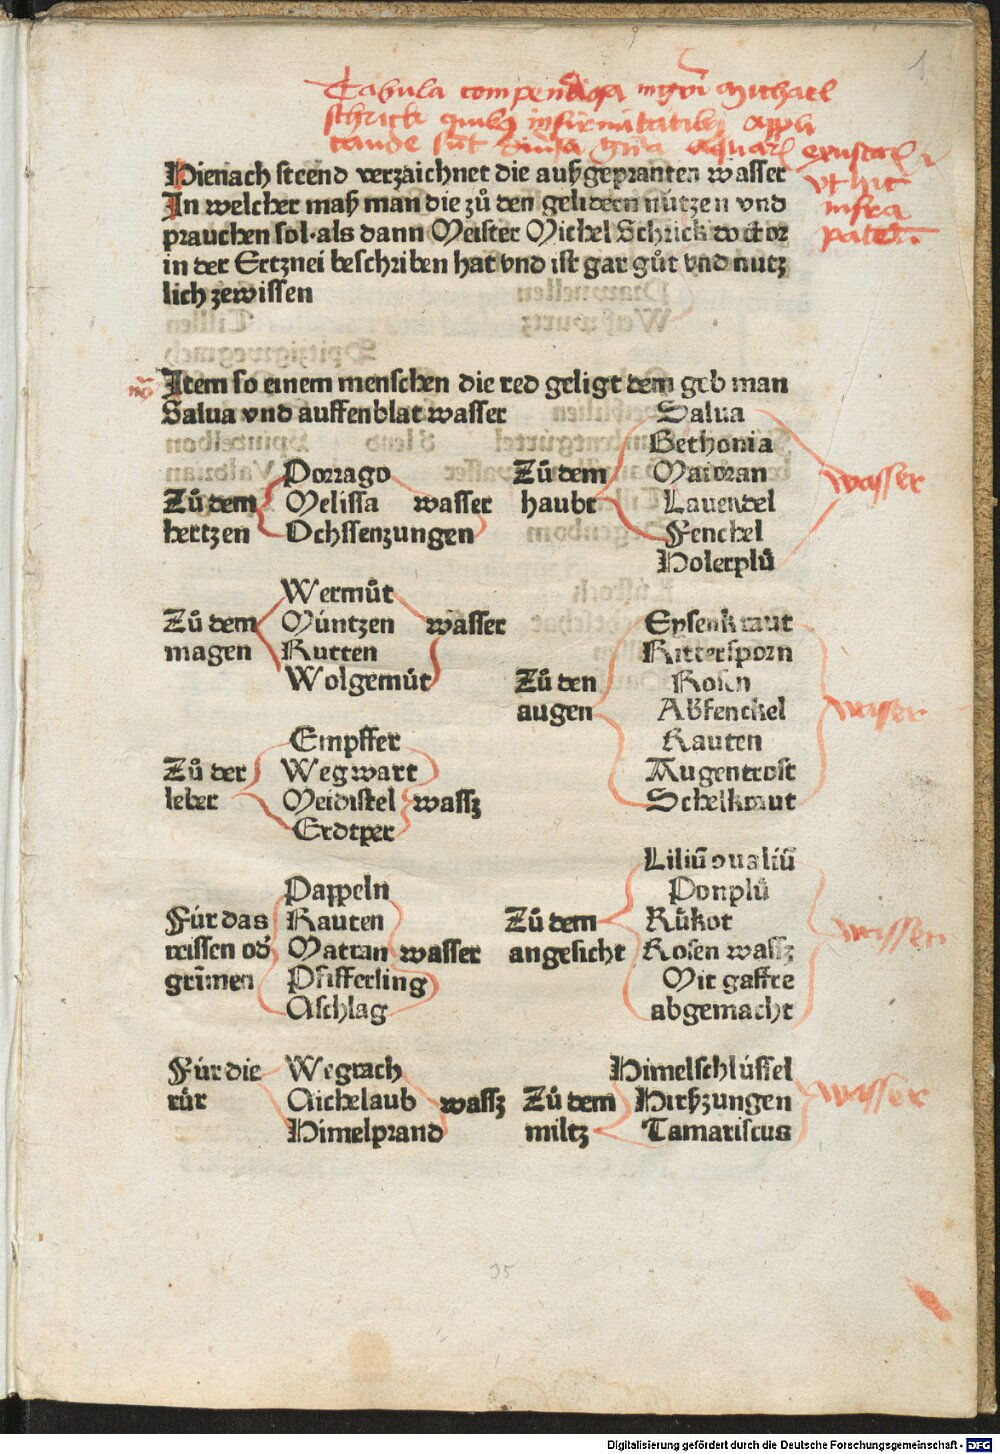 1
Tabula compendiosa mgri Michael
schrick quibus infirmitatibus appli
cande sunt diversa genera aquarum exustarum
vt hic
infra
patet.
Hienach steend verzaichnet die außgepranten wasser
In welcher maß man die zů den gelidern nützen vnd
prauchen sol·als dann Meister Michel Schrick doctor
in der Ertznei beschriben hat vnd ist gar gůt vnd nutz
lich zewissen
Item so einem menschen die red geligt dem geb man
Salua vnd auffenblat wasser
Zů dem hertzen
Porrago
Melissa wasser
Ochssenzungen
Zů dem haubt
Salua
Bethonia
Maioran
Lauendel
Fenchel
Holerplů
wasser
Zů dem magen
Wermůt
Müntzen wasser
Rutten
Wolgemůt
Zů den augen
Eysenkraut
Rittersporn
Rosen
Abfenckel
Rauten
Augentrost
Schelkraut
wasser
Zů der leber
Empffer
Wegwart
Meidistel wassz
Erdtper
Für das reissen od grim̄en
Pappeln
Rauten
Mattran wasser
Pfifferling
Aschlag
Zů dem angesicht
Liliū oualiū
Ponplů
Růkot
Rosen wassz
Mit gaffre
abgemacht
wasser
Für die rür
Wegrach
Aichelaub wassz
Himelprand
Zů dem miltz
Himelschlüssel
Hirßzungen
Tamariscus
wasser
35
Digitalisierung gefördert durch die Deutsche Forschungsgemeinschaft - DFG